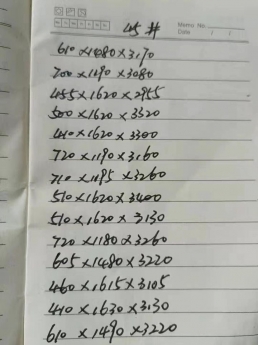 45#
Memo No.
Date / /
610×1480×3170
700×1190×3080
455×1620×2955
500×1620×3320
410×1620×3300
720×1190×3160
710×1195×3260
510×1620×3400
510×1620×3130
720×1180×3260
605×1480×3220
460×1615×3105
410×1630×3130
610×1490×3220